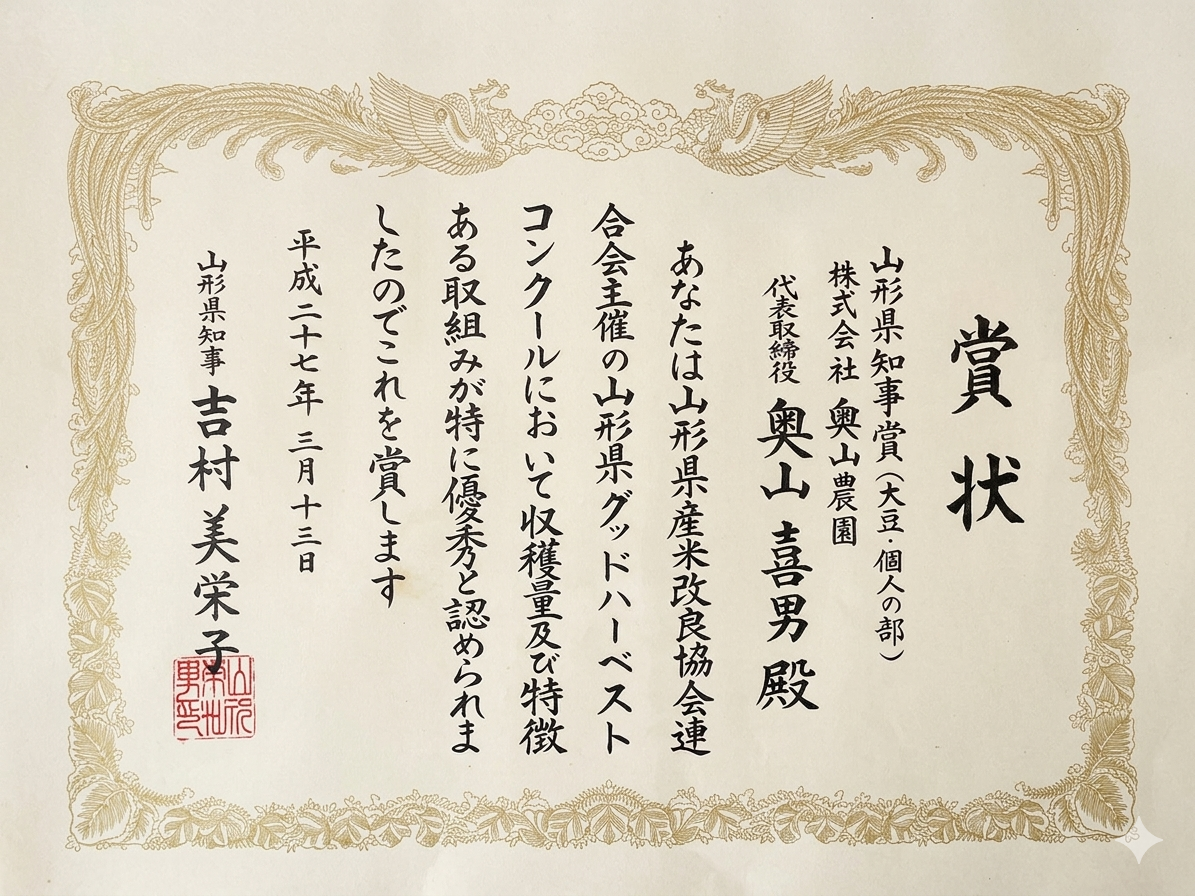 賞状
山形県知事賞(大豆・個人の部)
株式会社 奥山農園
代表取締役 奥山 喜男 殿
あなたは山形県産米改良協会連
合会主催の山形県グッドハーベスト
コンクールにおいて収穫量及び特徴
ある取組みが特に優秀と認められま
したのでこれを賞します
平成二十七年 三月十三日
山形県知事 吉村 美栄子